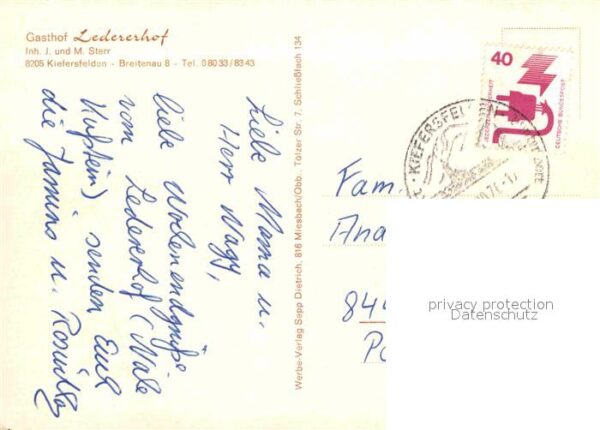 Gasthof Ledererhof
Inh. J. und M. Sterr
8205 Kiefersfelden - Breitenau 8 - Tel. 0 80 33 / 83 43
Liebe Mama u.
Herr Nagy,
liebe Wochenendgrüße
vom Ledererhof (Nähe
Kufstein) senden Euch
die
u.
Werbe-Verlag Sepp Dietrich, 816 Miesbach/Obb., Tölzer Str. 7, Schließfach 134
40
DEUTSCHE BUNDESPOST
KIEFERSFEL
Fam
Ana
844
Po
privacy protection
Datenschutz